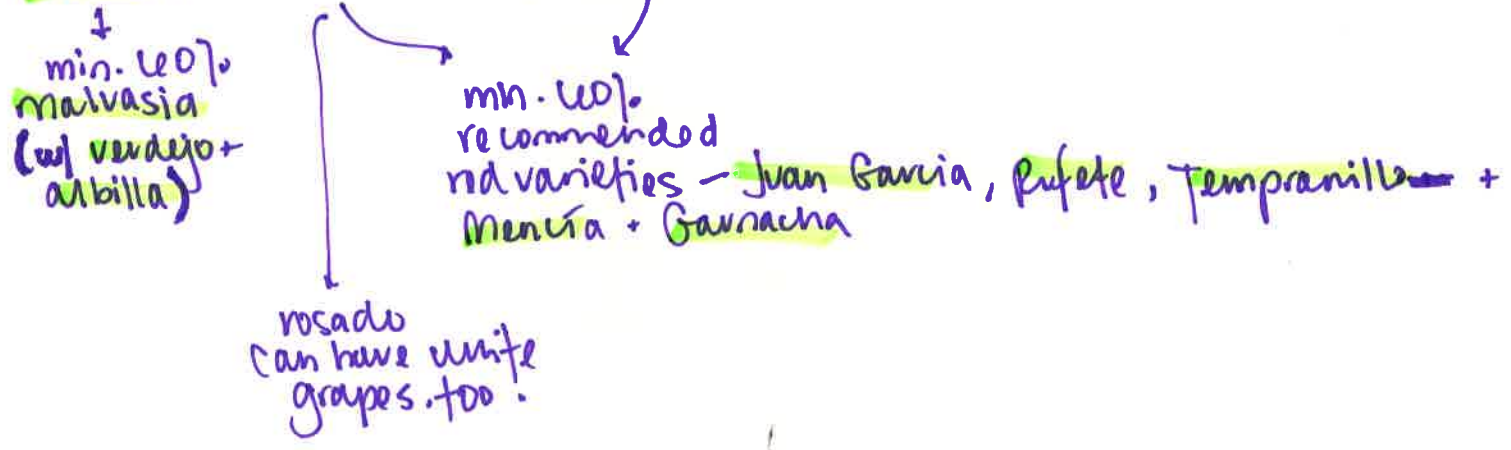 min. 60%
malvasia
(w/ verdejo +
albilla)
mn. 60%
recommended
red varieties - Juan Garcia, Rufete, Tempranillo +
Mencía + Garnacha
rosado
can have white
grapes, too!